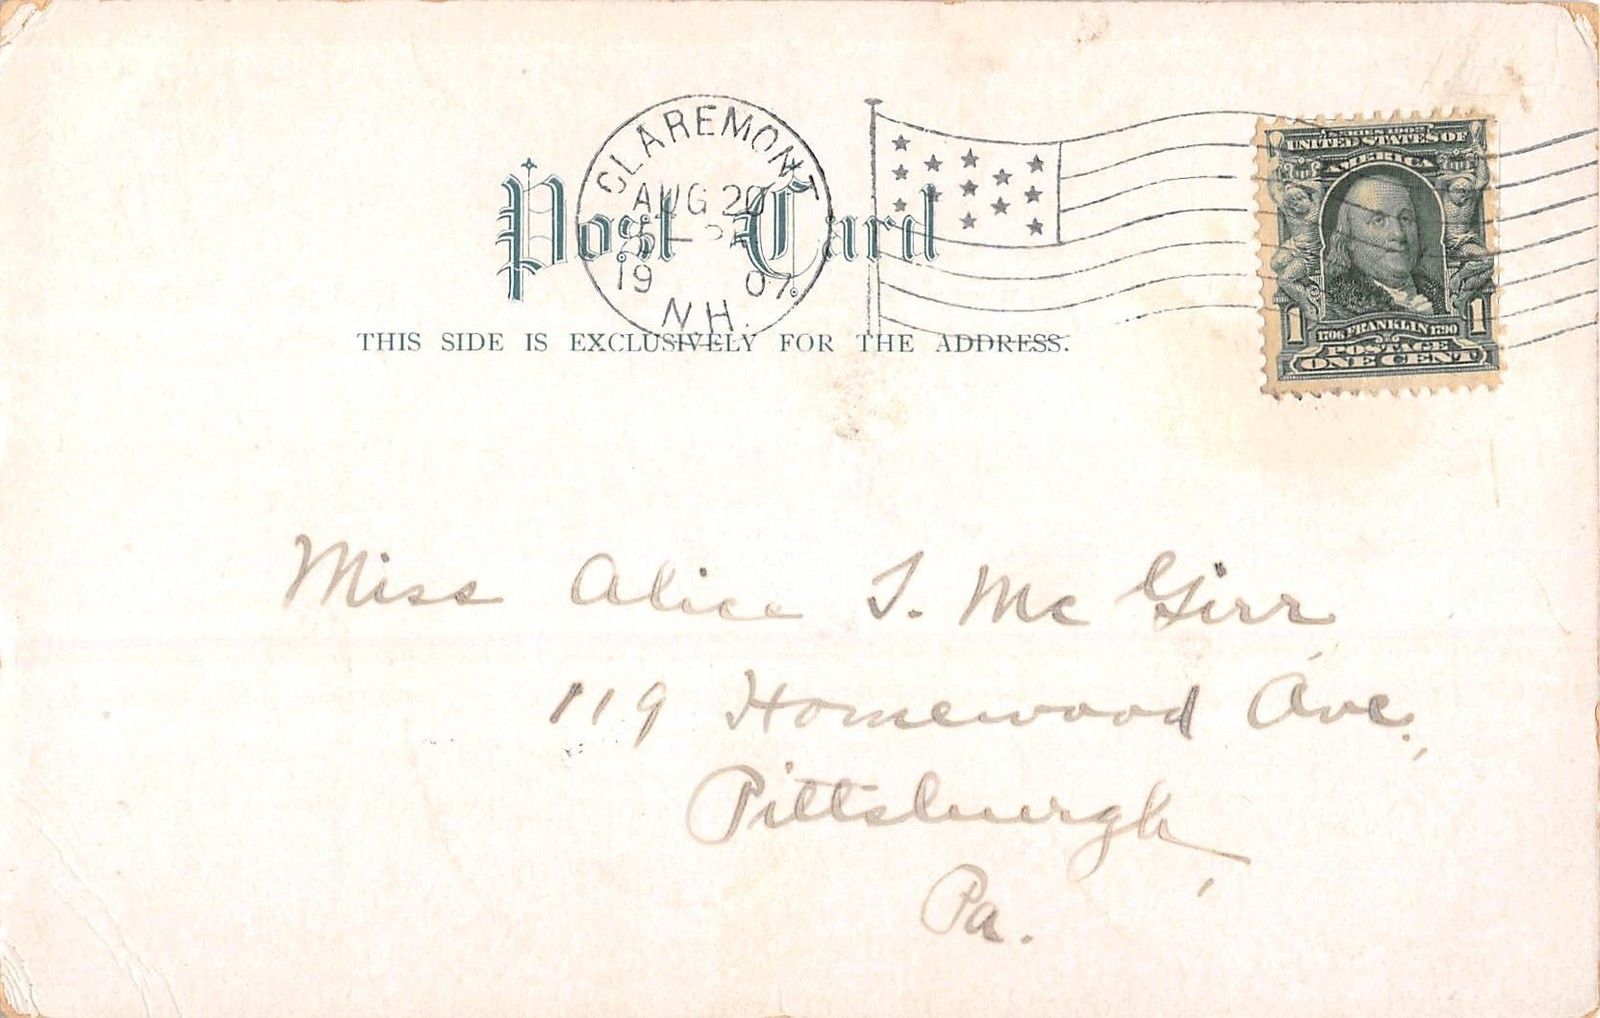 CLAREMONT
AUG 20
19 07
N.H.
Post Card
THIS SIDE IS EXCLUSIVELY FOR THE ADDRESS.
SERIES 1902
UNITED STATES OF
AMERICA
1 1
1706 FRANKLIN 1790
POSTAGE
ONE CENT
Miss Alice S. Mc Girr
119 Homewood Ave.,
Pittsburgh,
Pa.